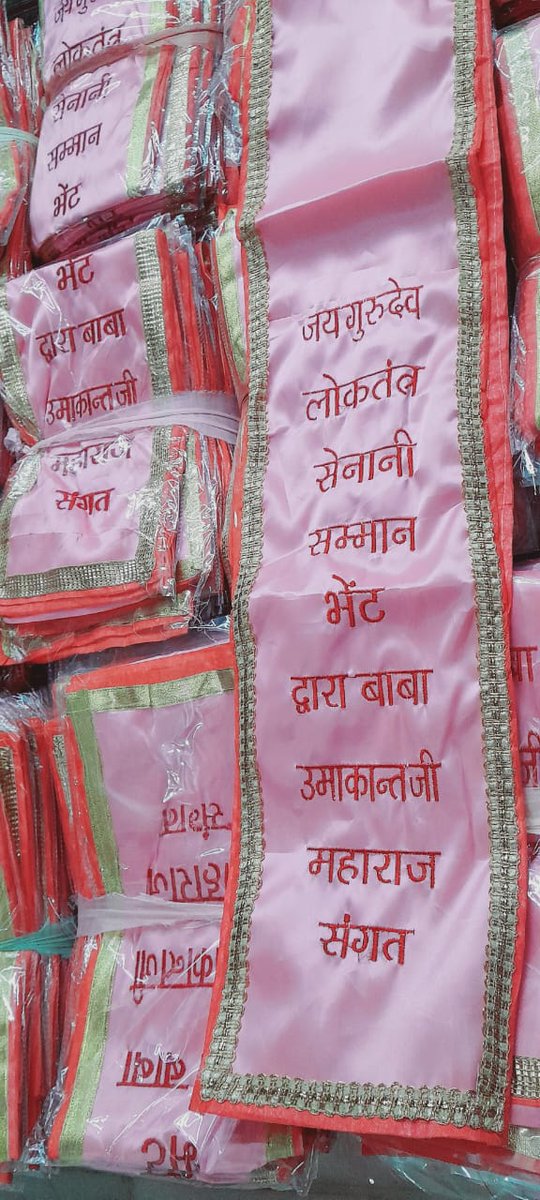 जय गुरुदेव
लोकतंत्र
सेनानी
सम्मान
भेंट
भेंट
द्वारा बाबा
उमाकान्त जी
महाराज
संगत
जय गुरुदेव
लोकतंत्र
सेनानी
सम्मान
भेंट
द्वारा बाबा
उमाकान्त जी
महाराज
संगत